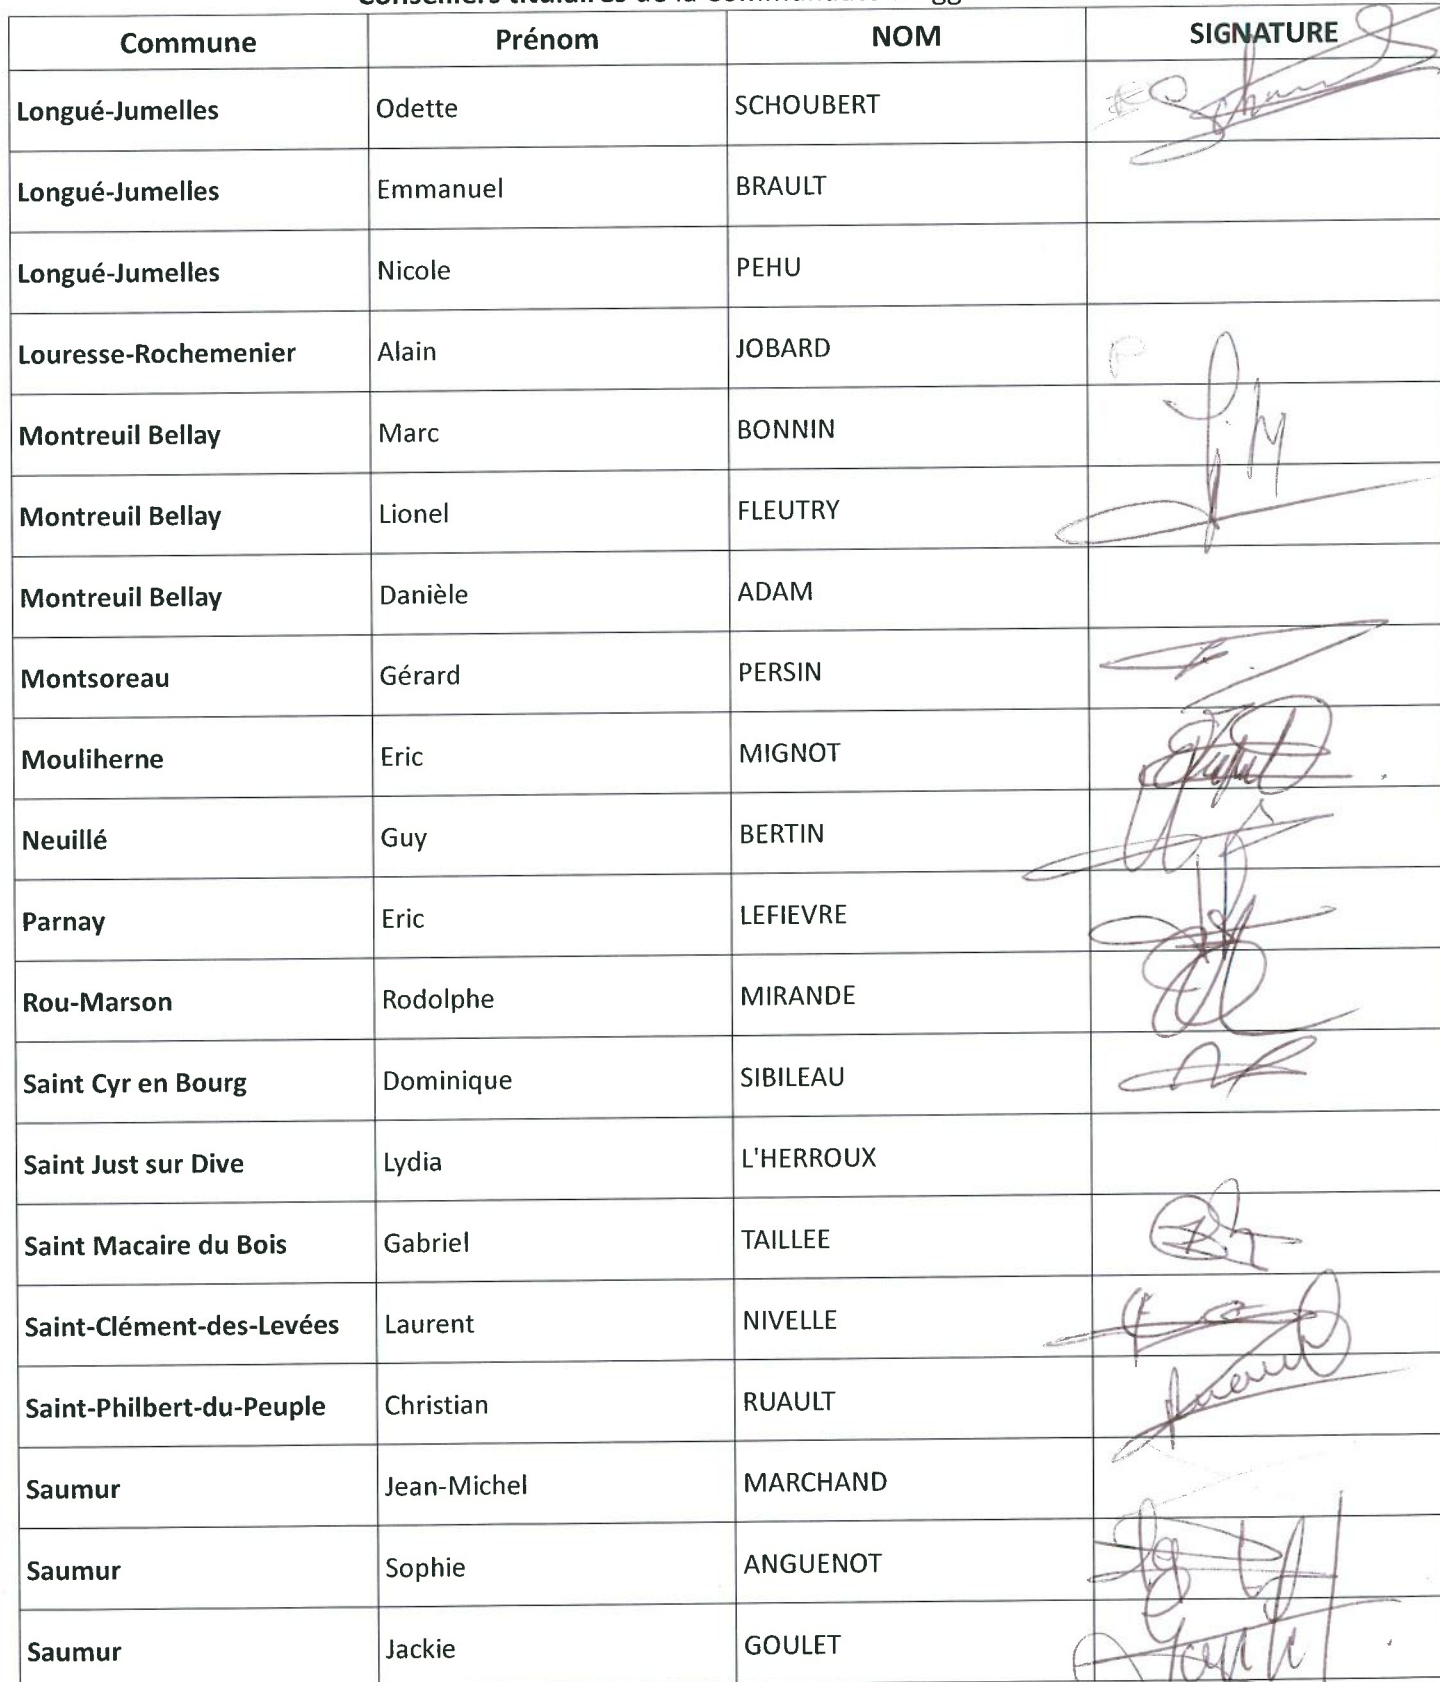 Conseillers titulaires de la Communauté
Commune Prénom NOM SIGNATURE
Longué-Jumelles Odette SCHOUBERT
Longué-Jumelles Emmanuel BRAULT
Longué-Jumelles Nicole PEHU
Louresse-Rochemenier Alain JOBARD P
Montreuil Bellay Marc BONNIN
Montreuil Bellay Lionel FLEUTRY
Montreuil Bellay Danièle ADAM
Montsoreau Gérard PERSIN
Mouliherne Eric MIGNOT
Neuillé Guy BERTIN
Parnay Eric LEFIEVRE
Rou-Marson Rodolphe MIRANDE
Saint Cyr en Bourg Dominique SIBILEAU
Saint Just sur Dive Lydia L'HERROUX
Saint Macaire du Bois Gabriel TAILLEE
Saint-Clément-des-Levées Laurent NIVELLE
Saint-Philbert-du-Peuple Christian RUAULT
Saumur Jean-Michel MARCHAND
Saumur Sophie ANGUENOT
Saumur Jackie GOULET